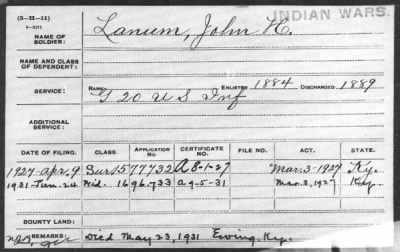 (3-III-11)
INDIAN WARS.
NAME OF SOLDIER: Lanum, John K.
NAME AND CLASS OF DEPENDENT:
SERVICE: RANK ENLISTED 1884 DISCHARGED 1889
G 20 U S Inf
ADDITIONAL SERVICE:
DATE OF FILING. CLASS. APPLICATION NO. CERTIFICATE NO. FILE NO. ACT. STATE.
1927-Apr. 9. Sur 1577732 A 8-1-27 Mar. 3-1927 Ky.
1931-Jun. 24 Wid. 1696.733 a 9-5-31 Mar. 3, 1927 Ky.
BOUNTY LAND:
REMARKS: Died May 23, 1931 Ewing, Ky.